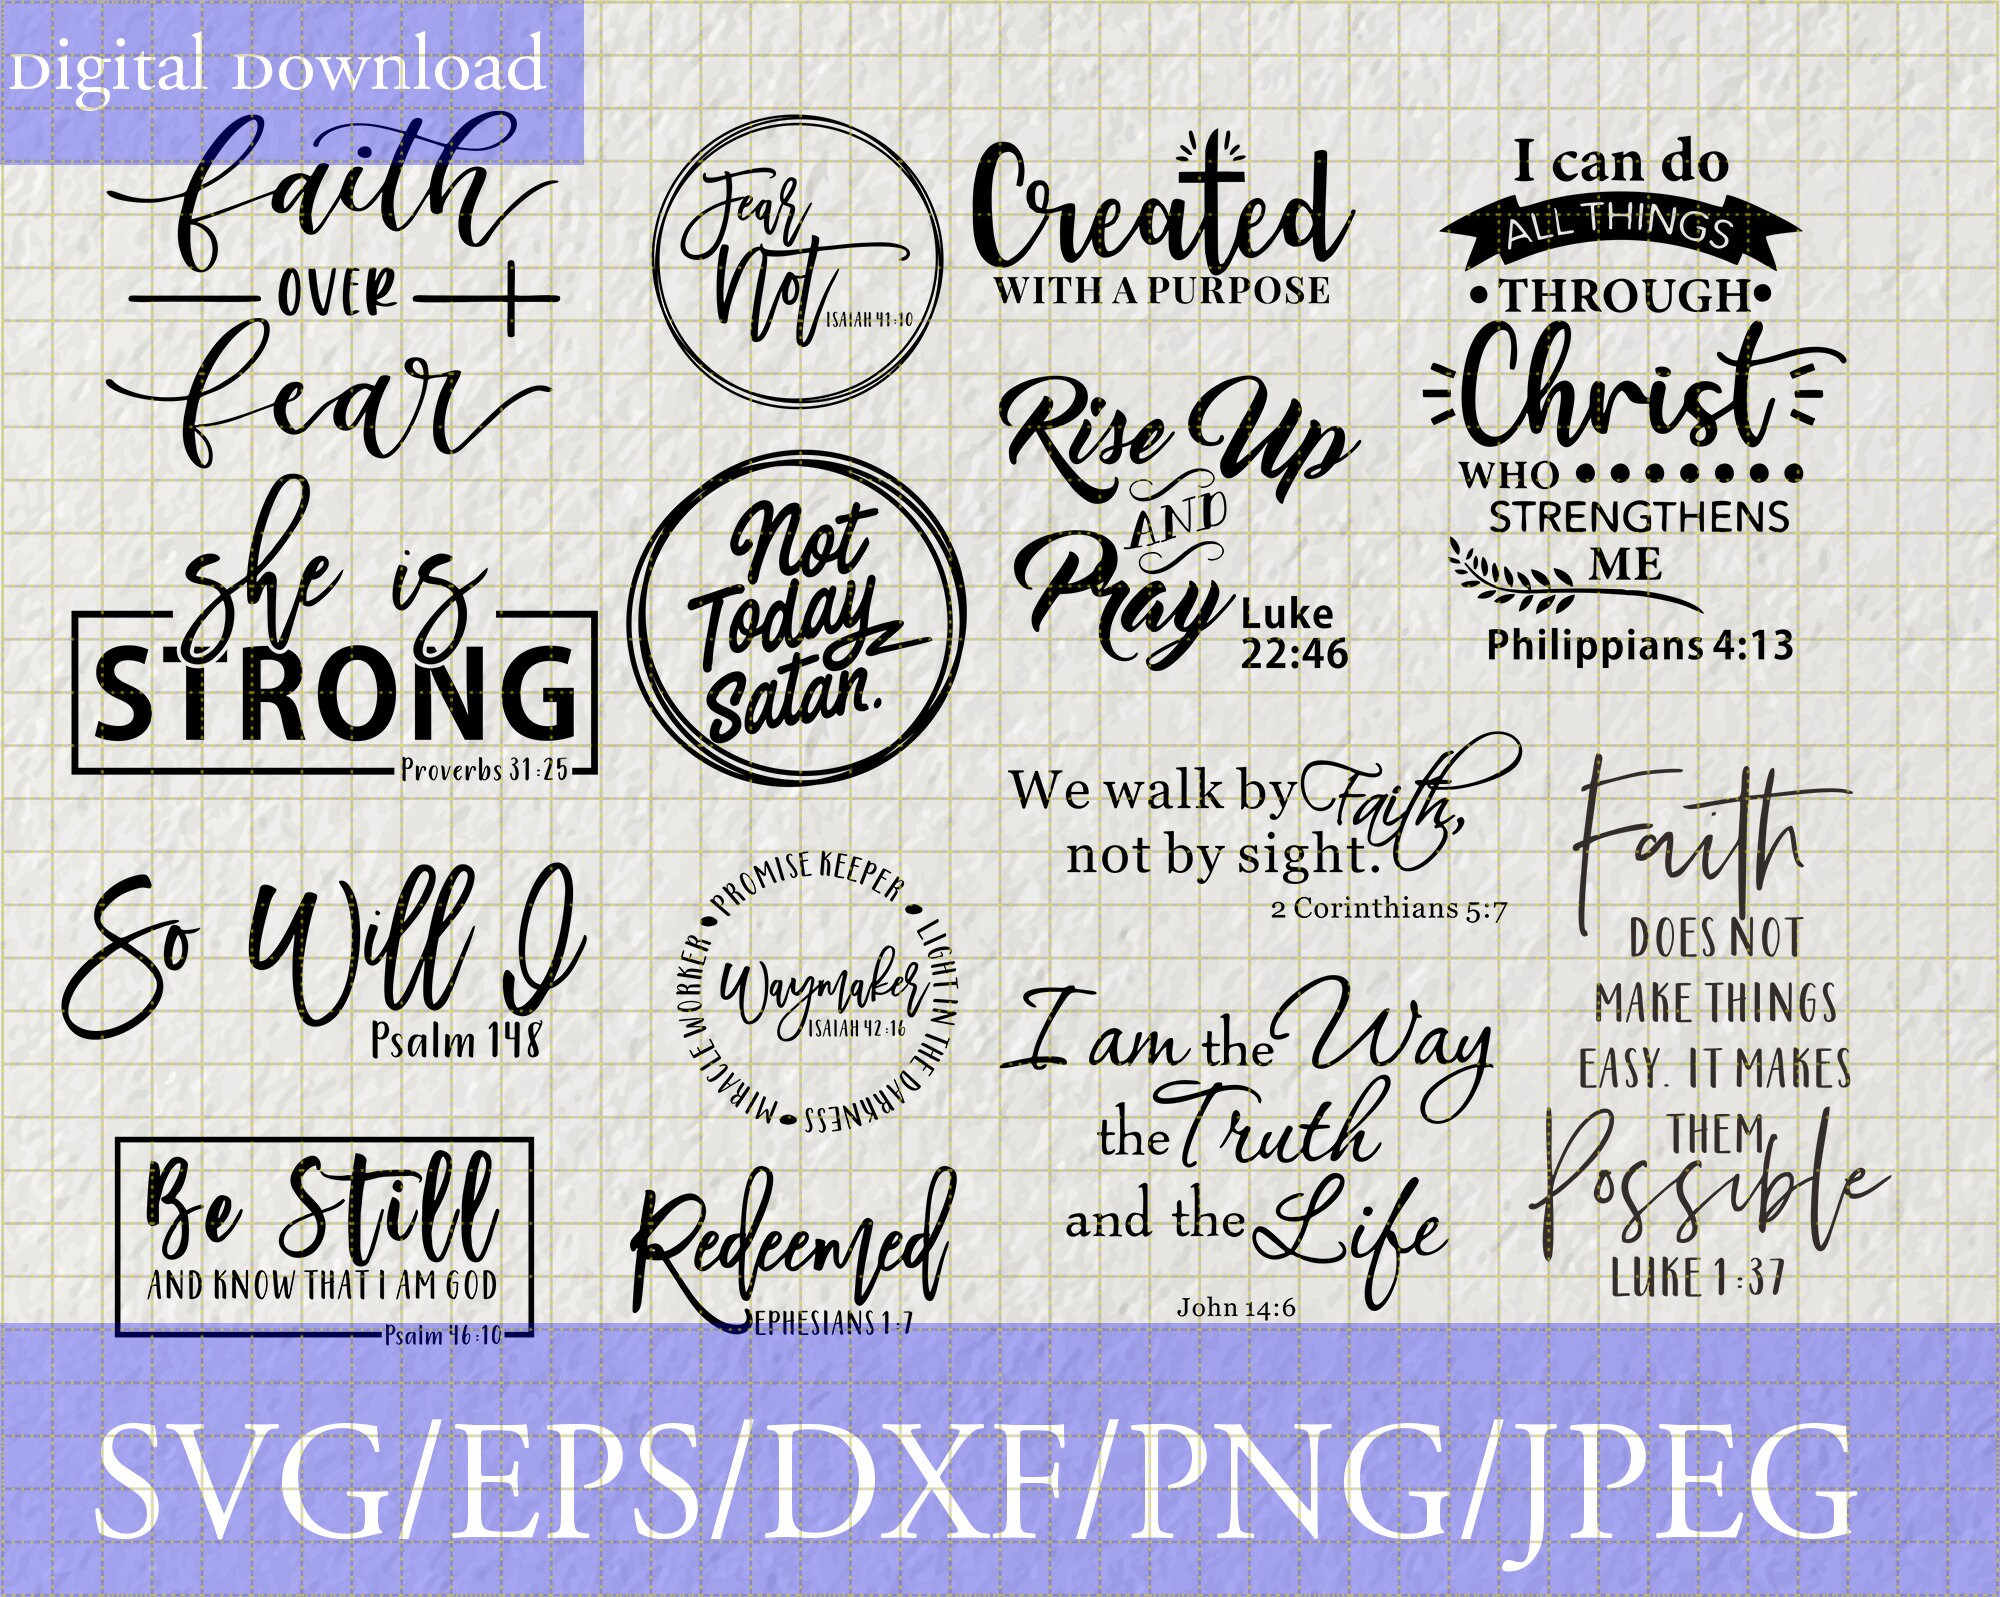 Digital Download
faith
OVER
fear
she is
STRONG
Proverbs 31:25
So Will I
Psalm 148
Be Still
AND KNOW THAT I AM GOD
Psalm 46:10
Fear
Not
ISAIAH 41:10
Not
Today
Satan.
PROMISE KEEPER • LIGHT IN THE DARKNESS • MIRACLE WORKER •
Waymaker
ISAIAH 42:16
Redeemed
EPHESIANS 1:7
Created
WITH A PURPOSE
Rise Up
AND
Pray
Luke
22:46
We walk by Faith,
not by sight.
2 Corinthians 5:7
I am the Way
the Truth
and the Life
John 14:6
I can do
ALL THINGS
•THROUGH•
Christ
WHO
STRENGTHENS
ME
Philippians 4:13
Faith
DOES NOT
MAKE THINGS
EASY. IT MAKES
THEM
Possible
LUKE 1:37
SVG/EPS/DXF/PNG/JPEG